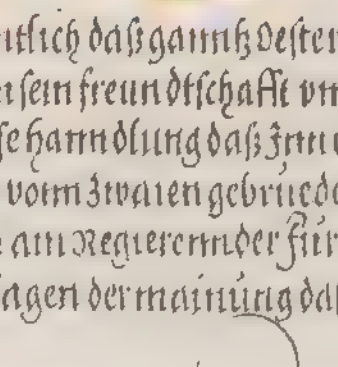 ntlich daß ganntz Oester
sein freundtschafft vn
se hanndlung daß Inn
vorm Zwaien gebrüed
am Regierennder Für
agen der mainung daß